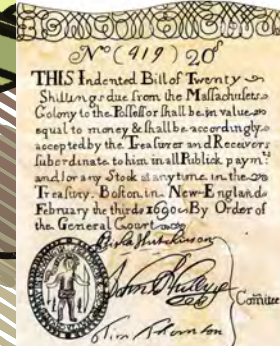 Nº (919) 20ˢ
THIS Indented Bill of Twenty
Shillings due from the Maſſachuſets
Colony to the Poſſeſſor ſhall be in value
equal to money & ſhall be accordingly
accepted by the Treaſurer and Receivors
ſubordinate to him in all Publick paymᵗˢ
and for any Stock at any time in the
Treaſury. Boſton in New-England
February the third 1690. By Order of
the General Court
Eliſha Hutchinson
Tim Thornton
Comitee